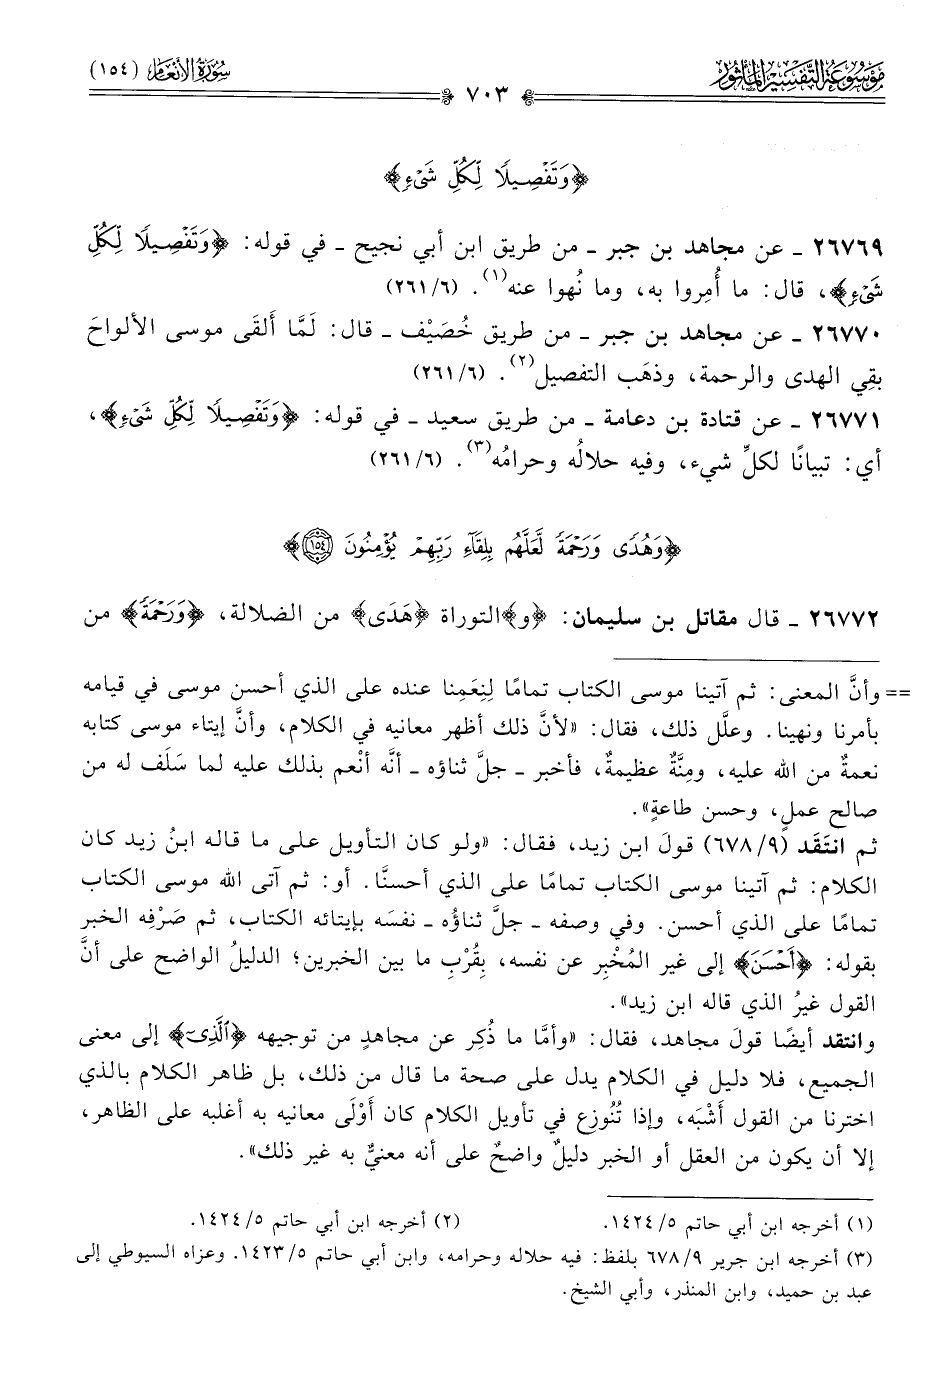 موسوعة التفسير المأثور
سورة الأنعام (١٥٤)
٧٠٣
﴿وَتَفْصِيلًا لِّكُلِّ شَىْءٍ﴾
٢٦٧٦٩ ـ عن مجاهد بن جبر ـ من طريق ابن أبي نجيح ـ في قوله: ﴿وَتَفْصِيلًا لِّكُلِّ
شَىْءٍ﴾، قال: ما أُمِروا به، وما نُهوا عنه(١). (٢٦١/٦)
٢٦٧٧٠ ـ عن مجاهد بن جبر ـ من طريق خُصَيْف ـ قال: لَمَّا أَلقَى موسى الألواحَ
بقِي الهدى والرحمة، وذهَب التفصيل(٢). (٢٦١/٦)
٢٦٧٧١ ـ عن قتادة بن دعامة ـ من طريق سعيد ـ في قوله: ﴿وَتَفْصِيلًا لِّكُلِّ شَىْءٍ﴾،
أي: تبيانًا لكلِّ شيء، وفيه حلالُه وحرامُه(٣). (٢٦١/٦)
﴿وَهُدًى وَرَحْمَةً لَّعَلَّهُم بِلِقَآءِ رَبِّهِمْ يُؤْمِنُونَ ١٥٤﴾
٢٦٧٧٢ ـ قال مقاتل بن سليمان: ﴿و﴾التوراة ﴿هَدَى﴾ من الضلالة، ﴿وَرَحْمَةً﴾ من
== وأنَّ المعنى: ثم آتينا موسى الكتاب تمامًا لِنِعَمِنا عنده على الذي أحسن موسى في قيامه
بأمرنا ونهينا. وعلَّل ذلك، فقال: «لأنَّ ذلك أظهر معانيه في الكلام، وأنَّ إيتاء موسى كتابه
نعمةٌ من الله عليه، ومِنَّةٌ عظيمةٌ، فأخبر ـ جلَّ ثناؤه ـ أنَّه أنْعم بذلك عليه لما سَلَف له من
صالح عملٍ، وحسن طاعةٍ».
ثم انتَقَد (٦٧٨/٩) قولَ ابن زيد، فقال: «ولو كان التأويل على ما قاله ابنُ زيد كان
الكلام: ثم آتينا موسى الكتاب تمامًا على الذي أحسنَّا. أو: ثم آتى الله موسى الكتاب
تمامًا على الذي أحسن. وفي وصفه ـ جلَّ ثناؤُه ـ نفسَه بإيتائه الكتاب، ثم صَرْفِه الخبر
بقوله: ﴿أَحْسَنَ﴾ إلى غير المُخْبِر عن نفسه، بِقُرْبِ ما بين الخبرين؛ الدليلُ الواضح على أنَّ
القول غيرُ الذي قاله ابن زيد».
وانتقد أيضًا قولَ مجاهد، فقال: «وأمَّا ما ذُكِر عن مجاهدٍ من توجيهه ﴿ٱلَّذِىٓ﴾ إلى معنى
الجميع، فلا دليل في الكلام يدل على صحة ما قال من ذلك، بل ظاهر الكلام بالذي
اخترنا من القول أَشْبَه، وإذا تُنُوزِع في تأويل الكلام كان أَوْلَى معانيه به أغلبه على الظاهر،
إلا أن يكون من العقل أو الخبر دليلٌ واضحٌ على أنه معنيٌّ به غير ذلك».
(١) أخرجه ابن أبي حاتم ١٤٢٤/٥. (٢) أخرجه ابن أبي حاتم ١٤٢٤/٥.
(٣) أخرجه ابن جرير ٦٧٨/٩ بلفظ: فيه حلاله وحرامه، وابن أبي حاتم ١٤٢٣/٥. وعزاه السيوطي إلى
عبد بن حميد، وابن المنذر، وأبي الشيخ.